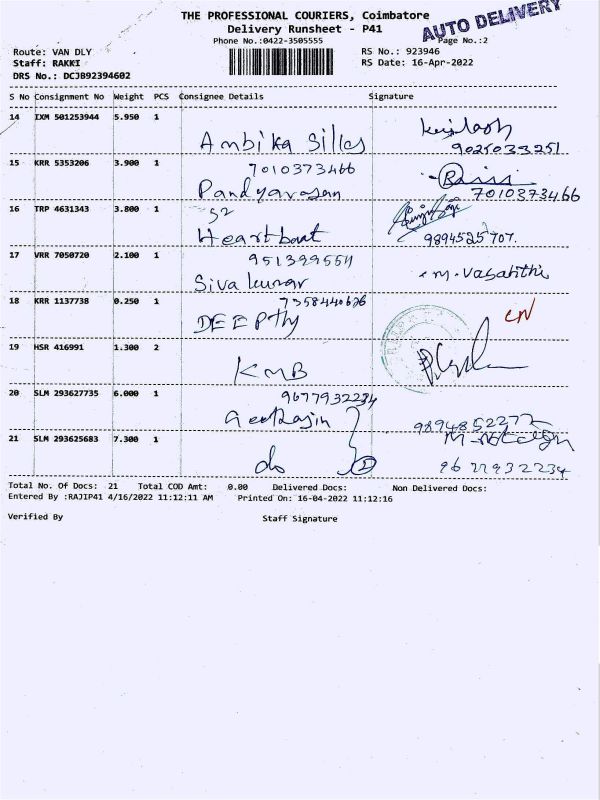 THE PROFESSIONAL COURIERS, Coimbatore
Delivery Runsheet - P41
AUTO DELIVERY
Phone No.:0422-3505555
Page No.:2
Route: VAN DLY
RS No.: 923946
Staff: RAKKI
RS Date: 16-Apr-2022
DRS No.: DCJB92394602
S No Consignment No Weight PCS Consignee Details Signature
14 IXM 501253944 5.950 1
Ambika Silks
9025033251
15 KRR 5353206 3.900 1
7010373466
Pandyarasan
7010373466
16 TRP 4631343 3.800 1
52
Heartbeat
9894525707.
17 VRR 7050720 2.100 1
951399554
Siva kumar
M. Vasanthi
18 KRR 1137738 0.250 1
7358440626
DEEPthy
19 HSR 416991 1.300 2
KMB
20 SLM 293627735 6.000 1
9677932234
9894852272
21 SLM 293625683 7.300 1
do 2
9677932234
Total No. Of Docs: 21 Total COD Amt: 0.00 Delivered Docs: Non Delivered Docs:
Entered By :RAJIP41 4/16/2022 11:12:11 AM Printed On: 16-04-2022 11:12:16
Verified By Staff Signature